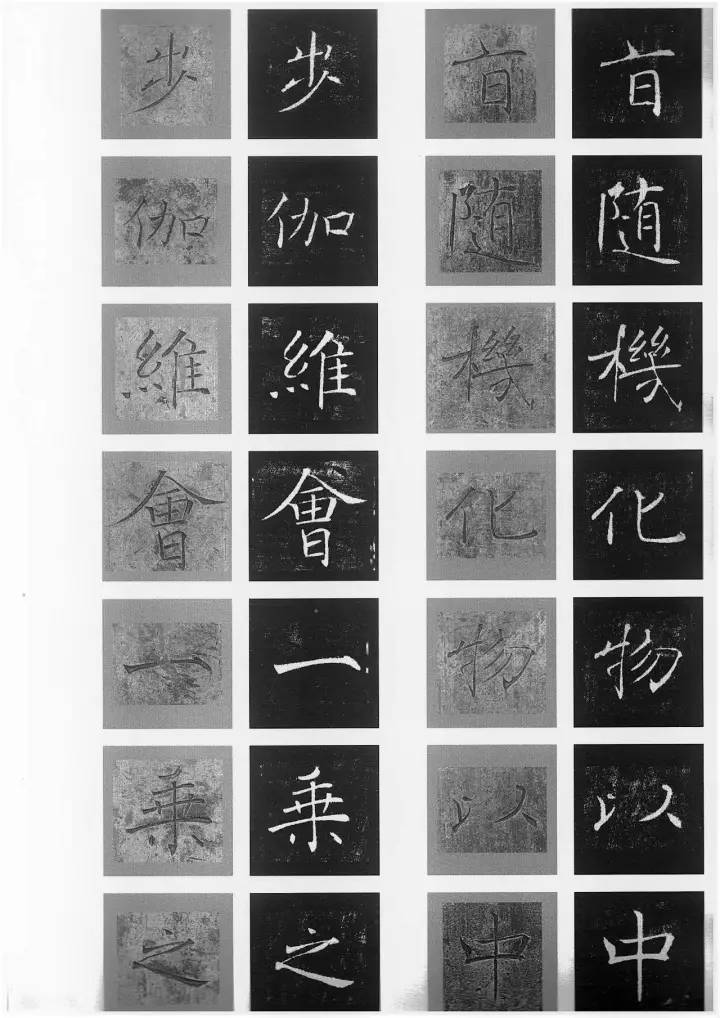 步伽維會一乗之
步伽維會一乗之
旨随機化物以中
旨随機化物以中